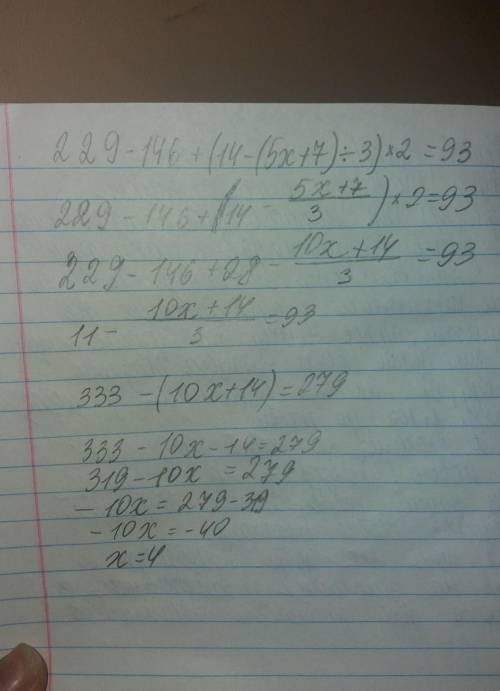 229-146+(14-(5x+7)÷3)*2=93
229-146+(14-\frac{5x+7}{3})*2=93
229-146+28-\frac{10x+14}{3}=93
11-\frac{10x+14}{3}=93
333-(10x+14)=279
333-10x-14=279
319-10x=279
-10x=279-319
-10x=-40
x=4